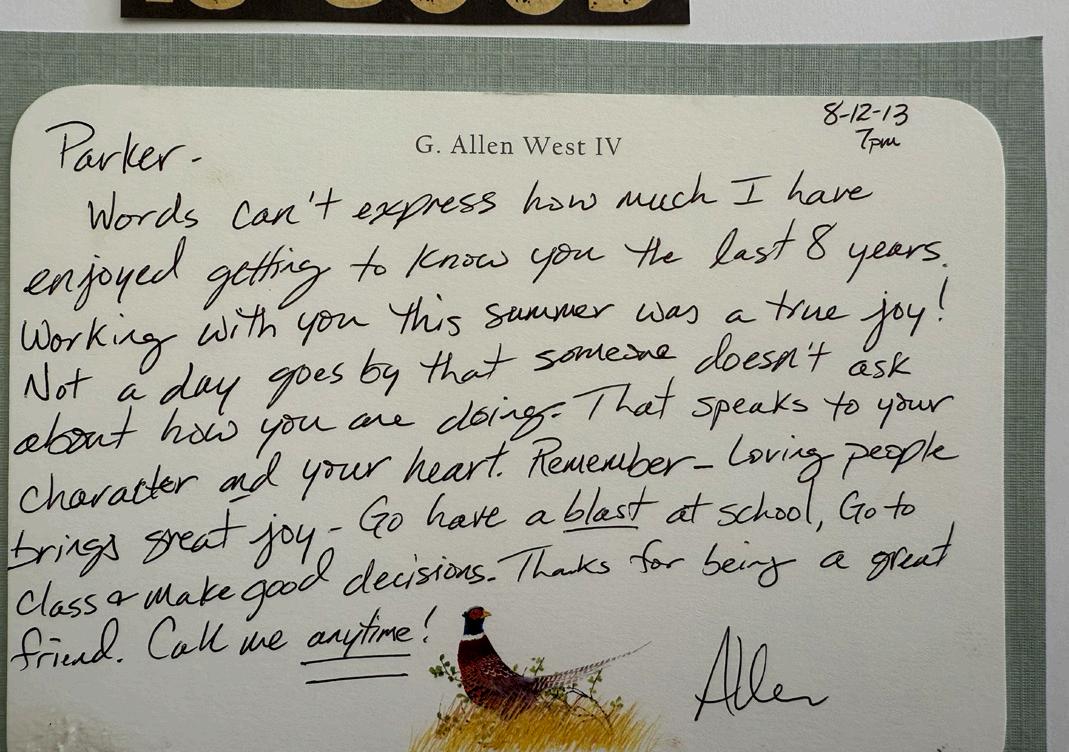 8-12-13
G. Allen West IV
7pm
Parker-
Words can't express how much I have
enjoyed getting to know you the last 8 years.
Working with you this summer was a true joy!
Not a day goes by that someone doesn't ask
about how you are doing. That speaks to your
character and your heart. Remember- Loving people
brings great joy- Go have a blast at school, Go to
class & make good decisions. Thanks for being a great
friend. Call me anytime!
Allen